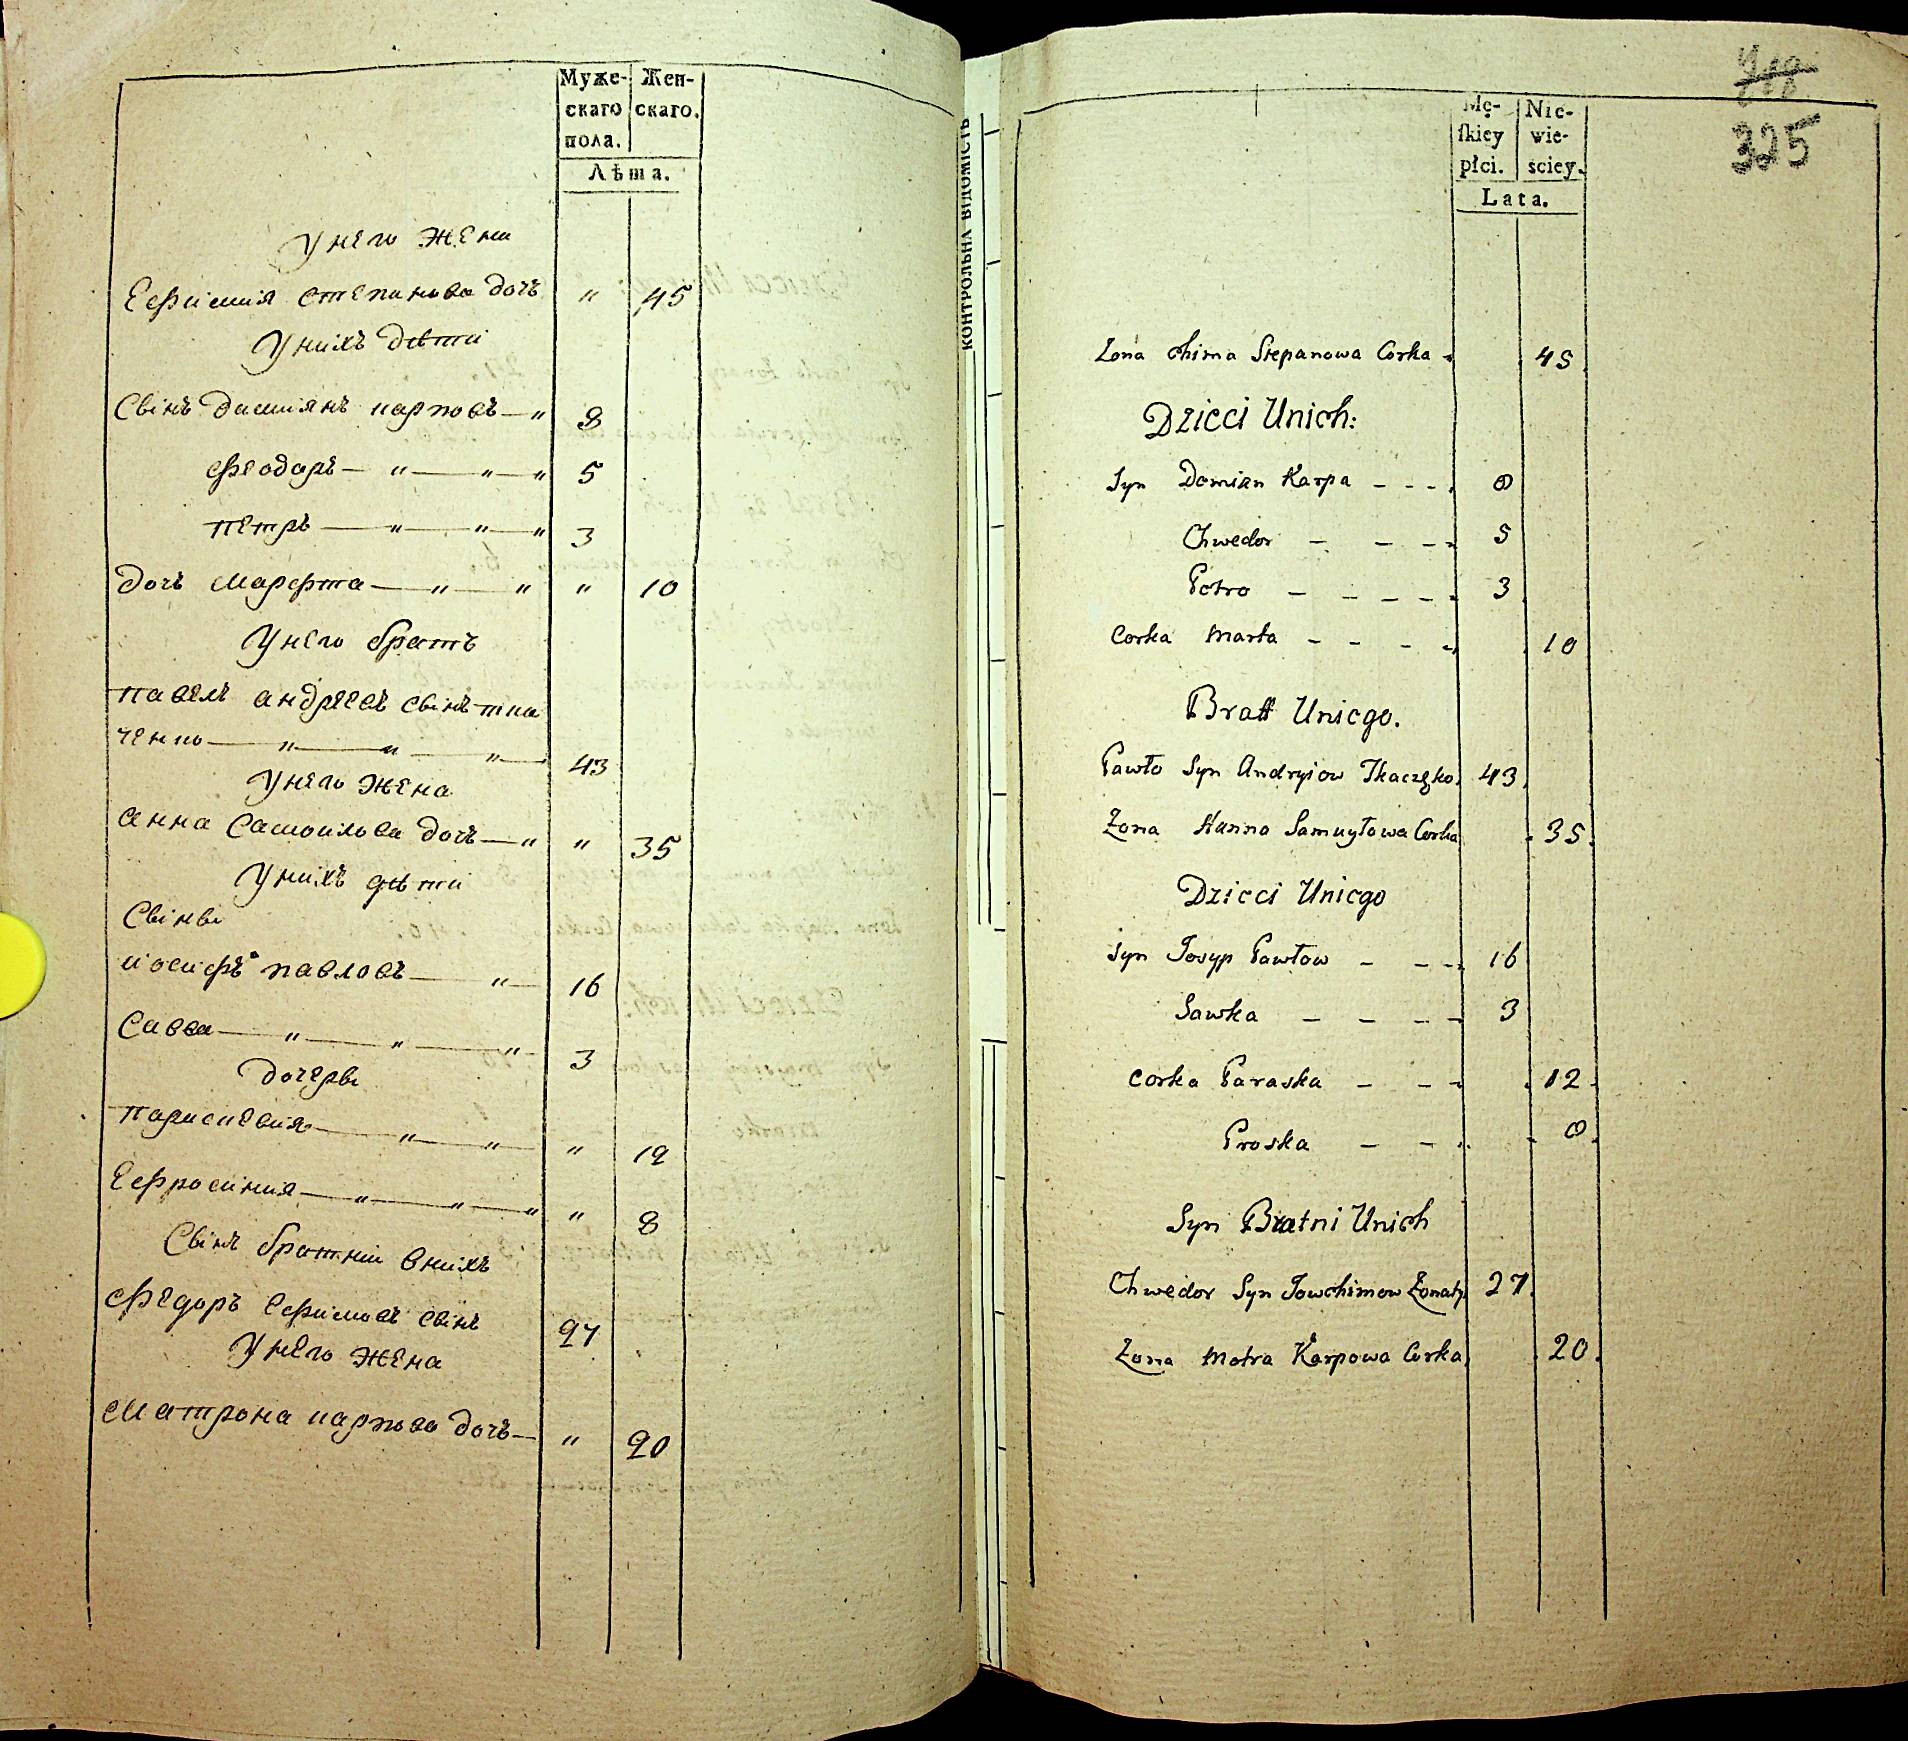 Муже-
скаго
пола.
Жен-
скаго.
Лѣта.
У него жена
Ефимия степанова дочь " 45
У нихъ дѣти
Сынъ дамиянъ карповъ — " 8
феодоръ — " — " — " 5
петръ — " — " — " 3
дочь марфта — " — " " 10
У него братъ
павелъ андреевъ сынъ тка
ченко — " — " — " — 43
У него жена
анна самоилова дочь — " " 35
У нихъ дѣти
Сынвы
иосифъ павловъ — " — 16
Савва — " — " — " — 3
дочеры
параскевия — " — " — " 12
Ефросиния — " — " — " " 8
Сынъ братний внихъ
федоръ ефимовъ сынъ 27
У него жена
матрона карпова дочь — " 20
КОНТРОЛЬНА ВІДОМІСТЬ
325
Mę-
skiey
płci.
Nie-
wie-
sciey.
Lata.
Zona Chima Stepanowa Corka - 45
Dzieci Unich:
Syn Domian Karpa - - - . 8
Chwedor - - - - 5
Petro - - - - - 3
Corka Marta - - - - 10
Bratt Uniego.
Pawło Syn Andryiow Tkaczęko. 43
Zona Hanna Samuyłowa Corka 35.
Dzieci Uniego
Syn Josyp Pawłow - - - 16
Sawka - - - - 3
Corka Paraska - - - 12
Proska - - . 8.
Syn Bratni Unich
Chwedor Syn Jowchimow Zonaty. 27.
Zona Motra Karpowa Corka. 20.